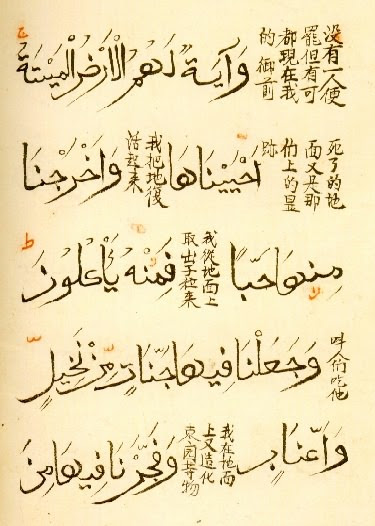 没有一人便
罷但有可
都現在我
的御前
وَآيَةٌ لَهُمُ الْأَرْضُ الْمَيْتَةُ
死了的地
面又是那
跡
اَحْيَيْنَاهَا
我把地復
活起來
وَاَخْرَجْنَا
مِنْهَا حَبًّا
我從地面上
取出子粒来
فَمِنْهُ يَأْكُلُونَ
吃他
وَجَعَلْنَا فِيهَا جَنَّاتٍ مِنْ نَخِيلٍ
وَاَعْنَابٍ
我在地面
上又造化
園等物
وَفَجَّرْنَا فِيهَا مِنَ